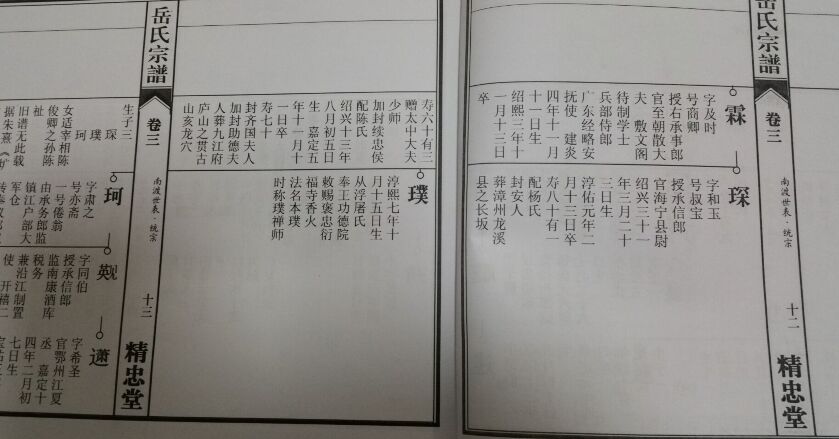 岳氏宗譜
卷三
南渡世表·统宗
十二
精忠堂
霖
字及时
号商卿
授右承事郎
官至朝散大
夫 敷文阁
待制学士
兵部侍郎
广东经略安
抚使 建炎
四年十一月
十一日生
绍熙三年十
一月十三日
卒
琛
字和玉
号叔宝
授承信郎
官海宁县尉
绍兴三十一
年三月二十
三日生
淳佑元年二
月十三日卒
寿八十有一
配杨氏
封安人
葬漳州龙溪
县之长坂
寿六十有三
赠太中大夫
少师
加封续忠侯
配陈氏
绍兴十三年
八月初五日
生 嘉定五
年十一月十
一日卒
寿七十
封齐国夫人
加封助德夫
人葬九江府
庐山之贯古
山亥龙穴
璞
淳熙七年十
月十五日生
从浮屠氏
奉王功德院
敕赐褒忠衍
福寺香火
法名本璞
时称璞禅师
岳氏宗譜
卷三
南渡世表·统宗
十三
精忠堂
生子三
琛
璞
珂
女适宰相陈
俊卿之孙陈
祉
旧谱无此载
据朱熹《
珂
字肃之
号亦斋
一号倦翁
由承务郎监
镇江户部大
军仓
英
字同伯
授承信郎
监南康酒库
税务
兼沿江制置
使 开禧二
字希圣
官鄂州江夏
丞 嘉定十
四年二月初
七日生